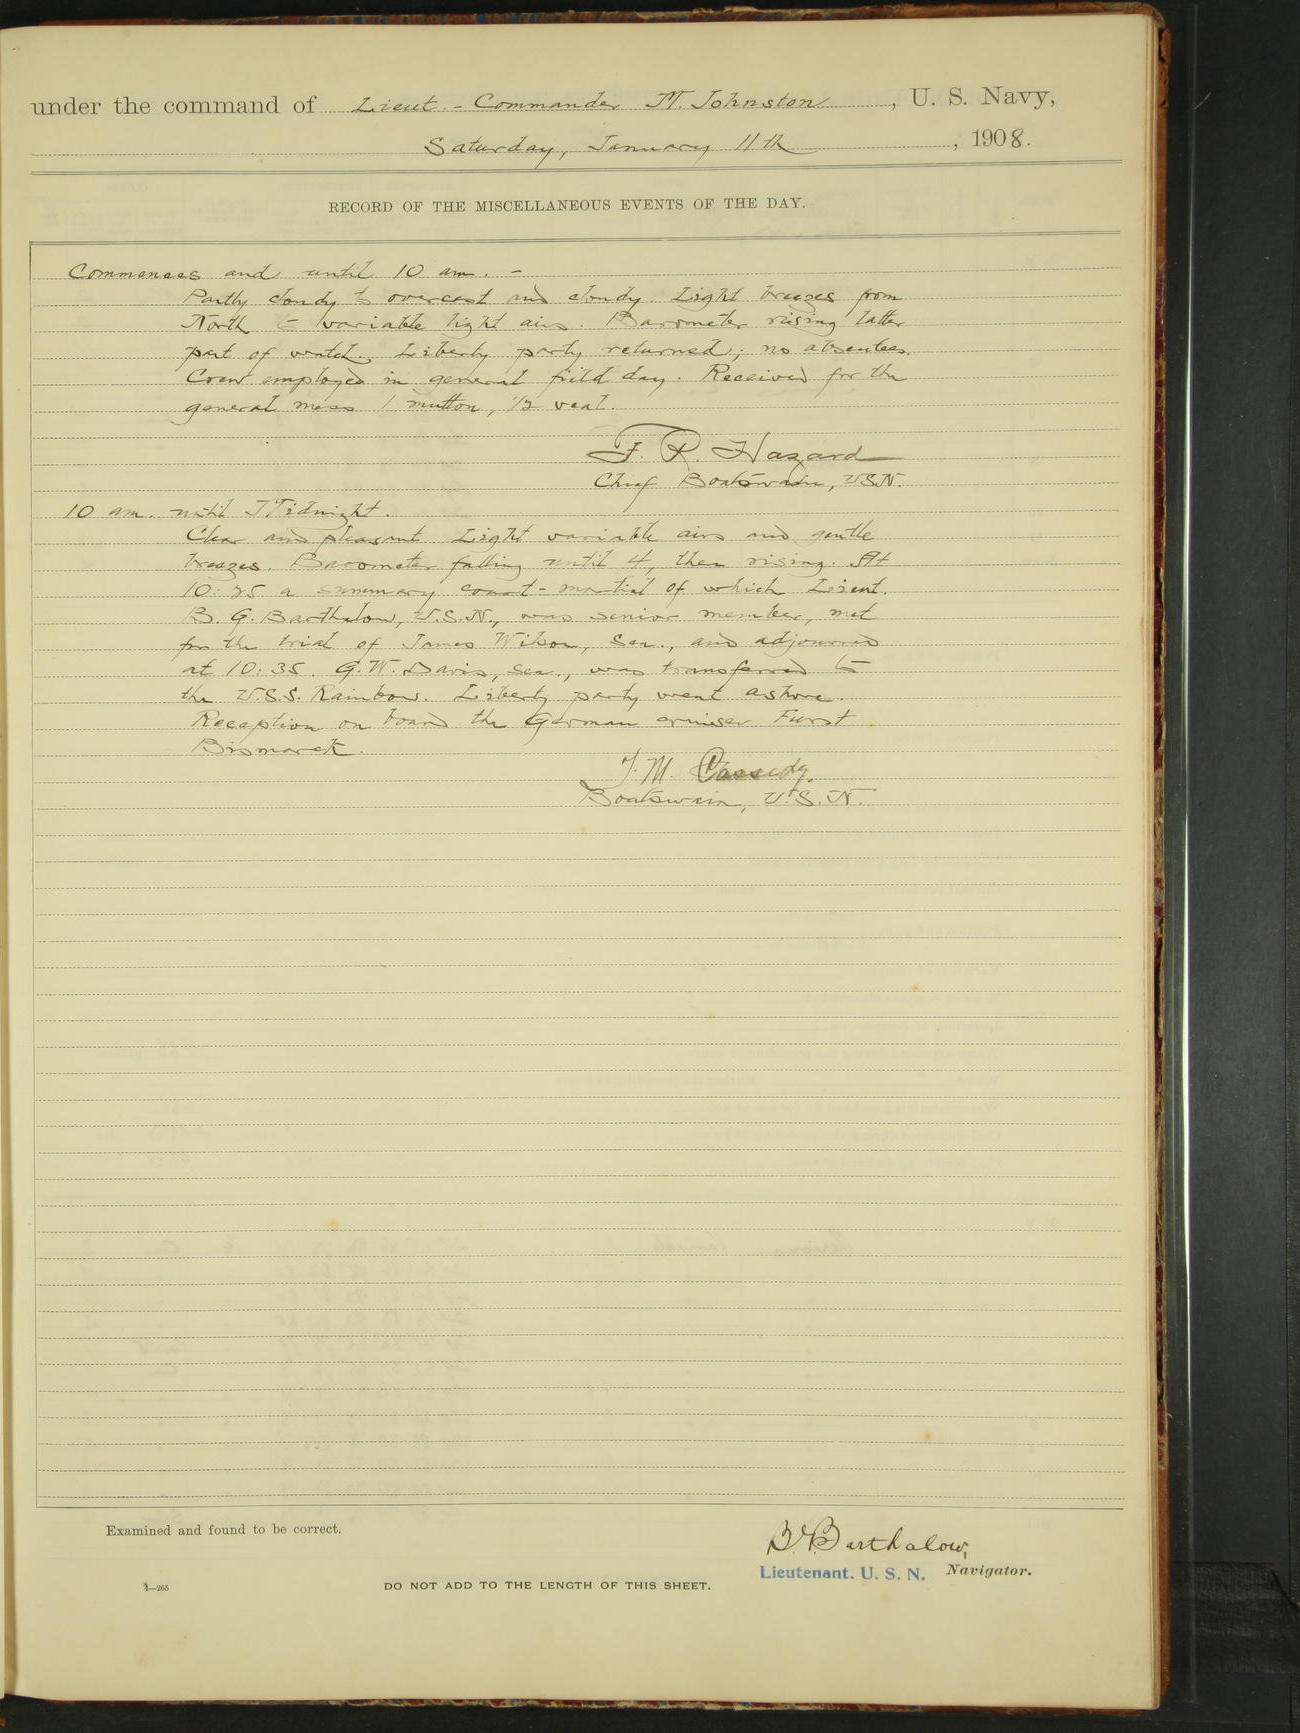 under the command of Lieut.-Commander M. Johnston, U. S. Navy,
Saturday, January 11th, 1908.
RECORD OF THE MISCELLANEOUS EVENTS OF THE DAY.
Commences and until 10 am. -
Partly cloudy to overcast and cloudy. Light breezes from
North & variable light airs. Barometer rising latter
part of watch. Liberty party returned; no absentees.
Crew employed in general field day. Received for the
general mess 1 mutton, 1/2 veal.
F. R. Hazard
Chief Boatswain, USN.
10 am. until Midnight.
Clear and pleasant. Light variable airs and gentle
breezes. Barometer falling until 4, then rising. At
10:25 a summary court-martial of which Lieut.
B. G. Barthalow, U.S.N., was senior member, met
for the trial of James Wilson, Sea., and adjourned
at 10:35. G. W. Davis, Sea., was transferred to
the U.S.S. Rainbow. Liberty party went ashore.
Reception on board the German cruiser Furst
Bismarck.
J. M. Cassidy.
Boatswain, U.S.N.
Examined and found to be correct.
B. G. Barthalow,
Lieutenant. U. S. N. Navigator.
—265
DO NOT ADD TO THE LENGTH OF THIS SHEET.